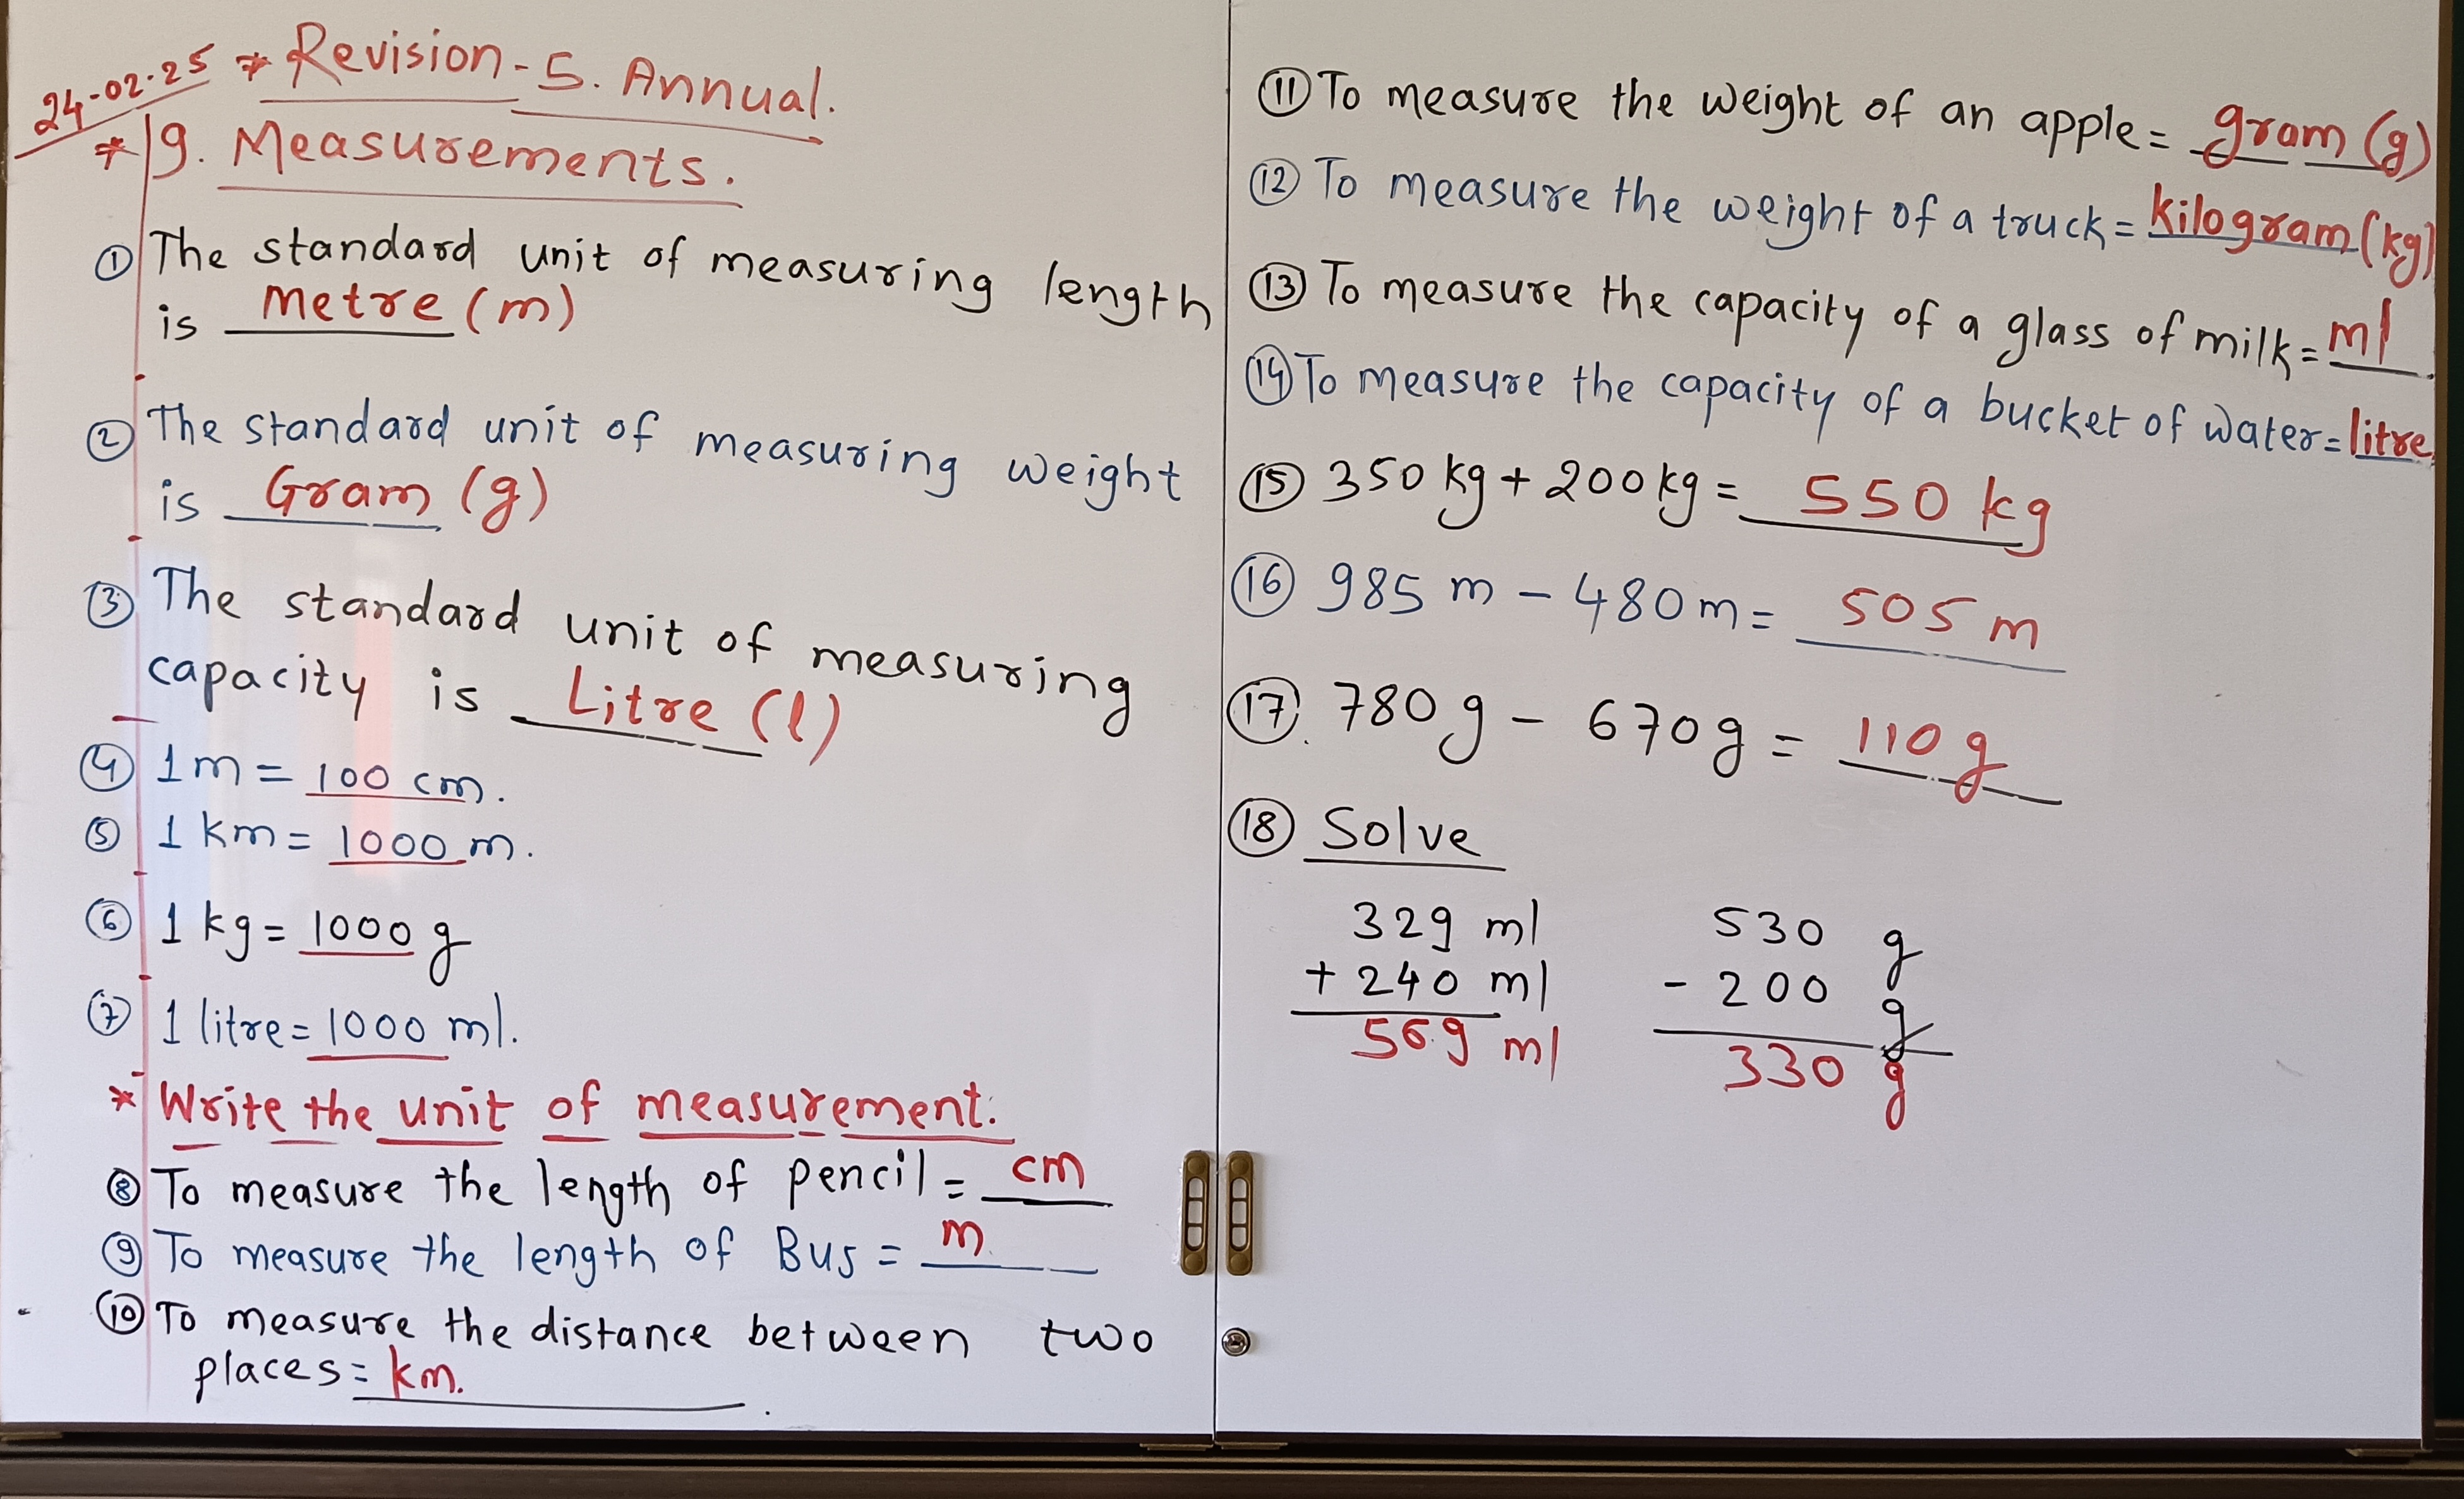 24-02-25 * Revision-5. Annual.
* 19. Measurements.
① The standard unit of measuring length
is Metre (m)
② The standard unit of measuring weight
is Gram (g)
③ The standard unit of measuring
capacity is Litre (l)
④ 1m = 100 cm.
⑤ 1 km = 1000 m.
⑥ 1 kg = 1000 g
⑦ 1 litre = 1000 ml.
* Write the unit of measurement.
⑧ To measure the length of pencil = cm
⑨ To measure the length of Bus = m
⑩ To measure the distance between two
places = km.
⑪ To measure the weight of an apple = gram (g)
⑫ To measure the weight of a truck = kilogram (kg)
⑬ To measure the capacity of a glass of milk = ml
⑭ To measure the capacity of a bucket of water = litre
⑮ 350 kg + 200 kg = 550 kg
⑯ 985 m - 480 m = 505 m
⑰. 780 g - 670 g = 110 g
⑱ Solve
329 ml 530 g
+ 240 ml - 200 g
569 ml 330 g